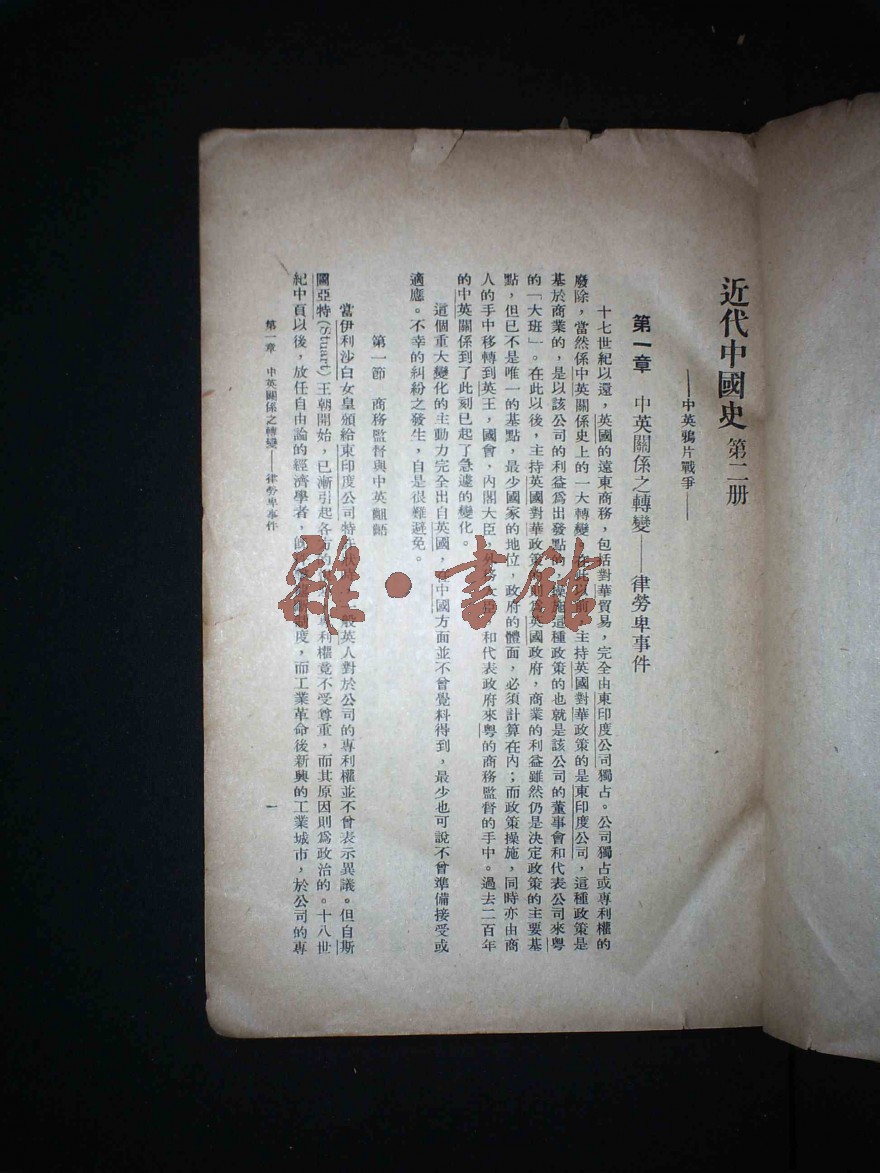 近代中國史 第二册
——中英鴉片戰爭——
第一章 中英關係之轉變——律勞卑事件
十七世紀以還，英國的遠東商務，包括對華貿易，完全由東印度公司獨占。公司獨占或專利權的
廢除，當然係中英關係史上的一大轉變。在此以前，主持英國對華政策的是東印度公司，這種政策是
基於商業的，是以該公司的利益爲出發點的，操施這種政策的也就是該公司的董事會和代表公司來粵
的「大班」。在此以後，主持英國對華政策的則爲英國政府，商業的利益雖然仍是決定政策的主要基
點，但已不是唯一的基點，最少國家的地位，政府的體面，必須計算在內；而政策操施，同時亦由商
人的手中移轉到英王，國會，內閣大臣，外務大臣，和代表政府來粵的商務監督的手中。過去二百年
的中英關係到了此刻已起了急遽的變化。
這個重大變化的主動力完全出自英國，在中國方面並不曾覺料得到，最少也可說不曾準備接受或
適應。不幸的糾紛之發生，自是很難避免。
第一節 商務監督與中英齟齬
當伊利沙白女皇頒給東印度公司特 般英人對於公司的專利權並不曾表示異議。但自斯
圖亞特(Stuart)王朝開始，已漸引起各方的 專利權竟不受尊重，而其原因則爲政治的。十八世
紀中頁以後，放任自由論的經濟學者， 制度，而工業革命後新興的工業城市，於公司的專
第一章 中英關係之轉變——律勞卑事件
一
雜·書館